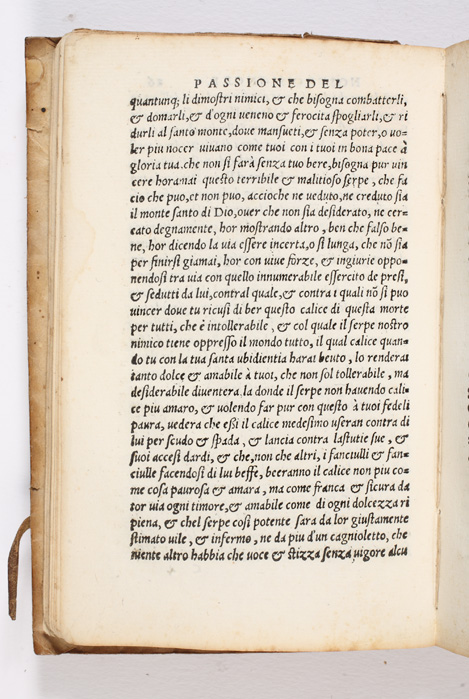 PASSIONE DEL
quantunq; li dimostri nimici, & che bisogna combatterli,
& domarli, & d'ogni ueneno & ferocita spogliarli, & ri
durli al santo monte, doue mansueti, & senza poter, o uo-
ler piu nocer uiuano come tuoi con i tuoi in bona pace à
gloria tua. che non si farà senza tuo bere, bisogna pur uin
cere horamai questo terribile & malitioso serpe, che fa
cio che puo, et non puo, accioche ne ueduto, ne creduto sia
il monte santo di Dio, ouer che non sia desiderato, ne cer-
cato degnamente, hor mostrando altro, ben che falso be-
ne, hor dicendo la uia essere incerta, o si lunga, che nõ sia
per finirsi giamai, hor con uiue forze, & ingiurie oppo-
nendosi tra uia con quello innumerabile essercito de presi,
& sedutti da lui, contral quale, & contra i quali nõ si puo
uincer doue tu ricusi di ber questo calice di questa morte
per tutti, che è intollerabile, & col quale il serpe nostro
nimico tiene oppresso il mondo tutto, il qual calice quan-
do tu con la tua santa ubidientia harai beuto, lo renderai
tanto dolce & amabile à tuoi, che non sol tollerabile, ma
desiderabile diuentera, la donde il serpe non hauendo cali-
ce piu amaro, & uolendo far pur con questo à tuoi fedeli
paura, uedera che eßi il calice medesimo useran contra di
lui per scudo & spada, & lancia contra lastutie sue, &
suoi accesi dardi, & che, non che altri, i fanciulli & fan-
ciulle facendosi di lui beffe, beeranno il calice non piu co-
me cosa paurosa & amara, ma come franca & sicura da
tor uia ogni timore, & amabile come di ogni dolcezza ri
piena, & chel serpe cosi potente sara da lor giustamente
stimato uile, & infermo, ne da piu d'un cagnioletto, che
niente altro habbia che uoce & stizza senza uigore alcu